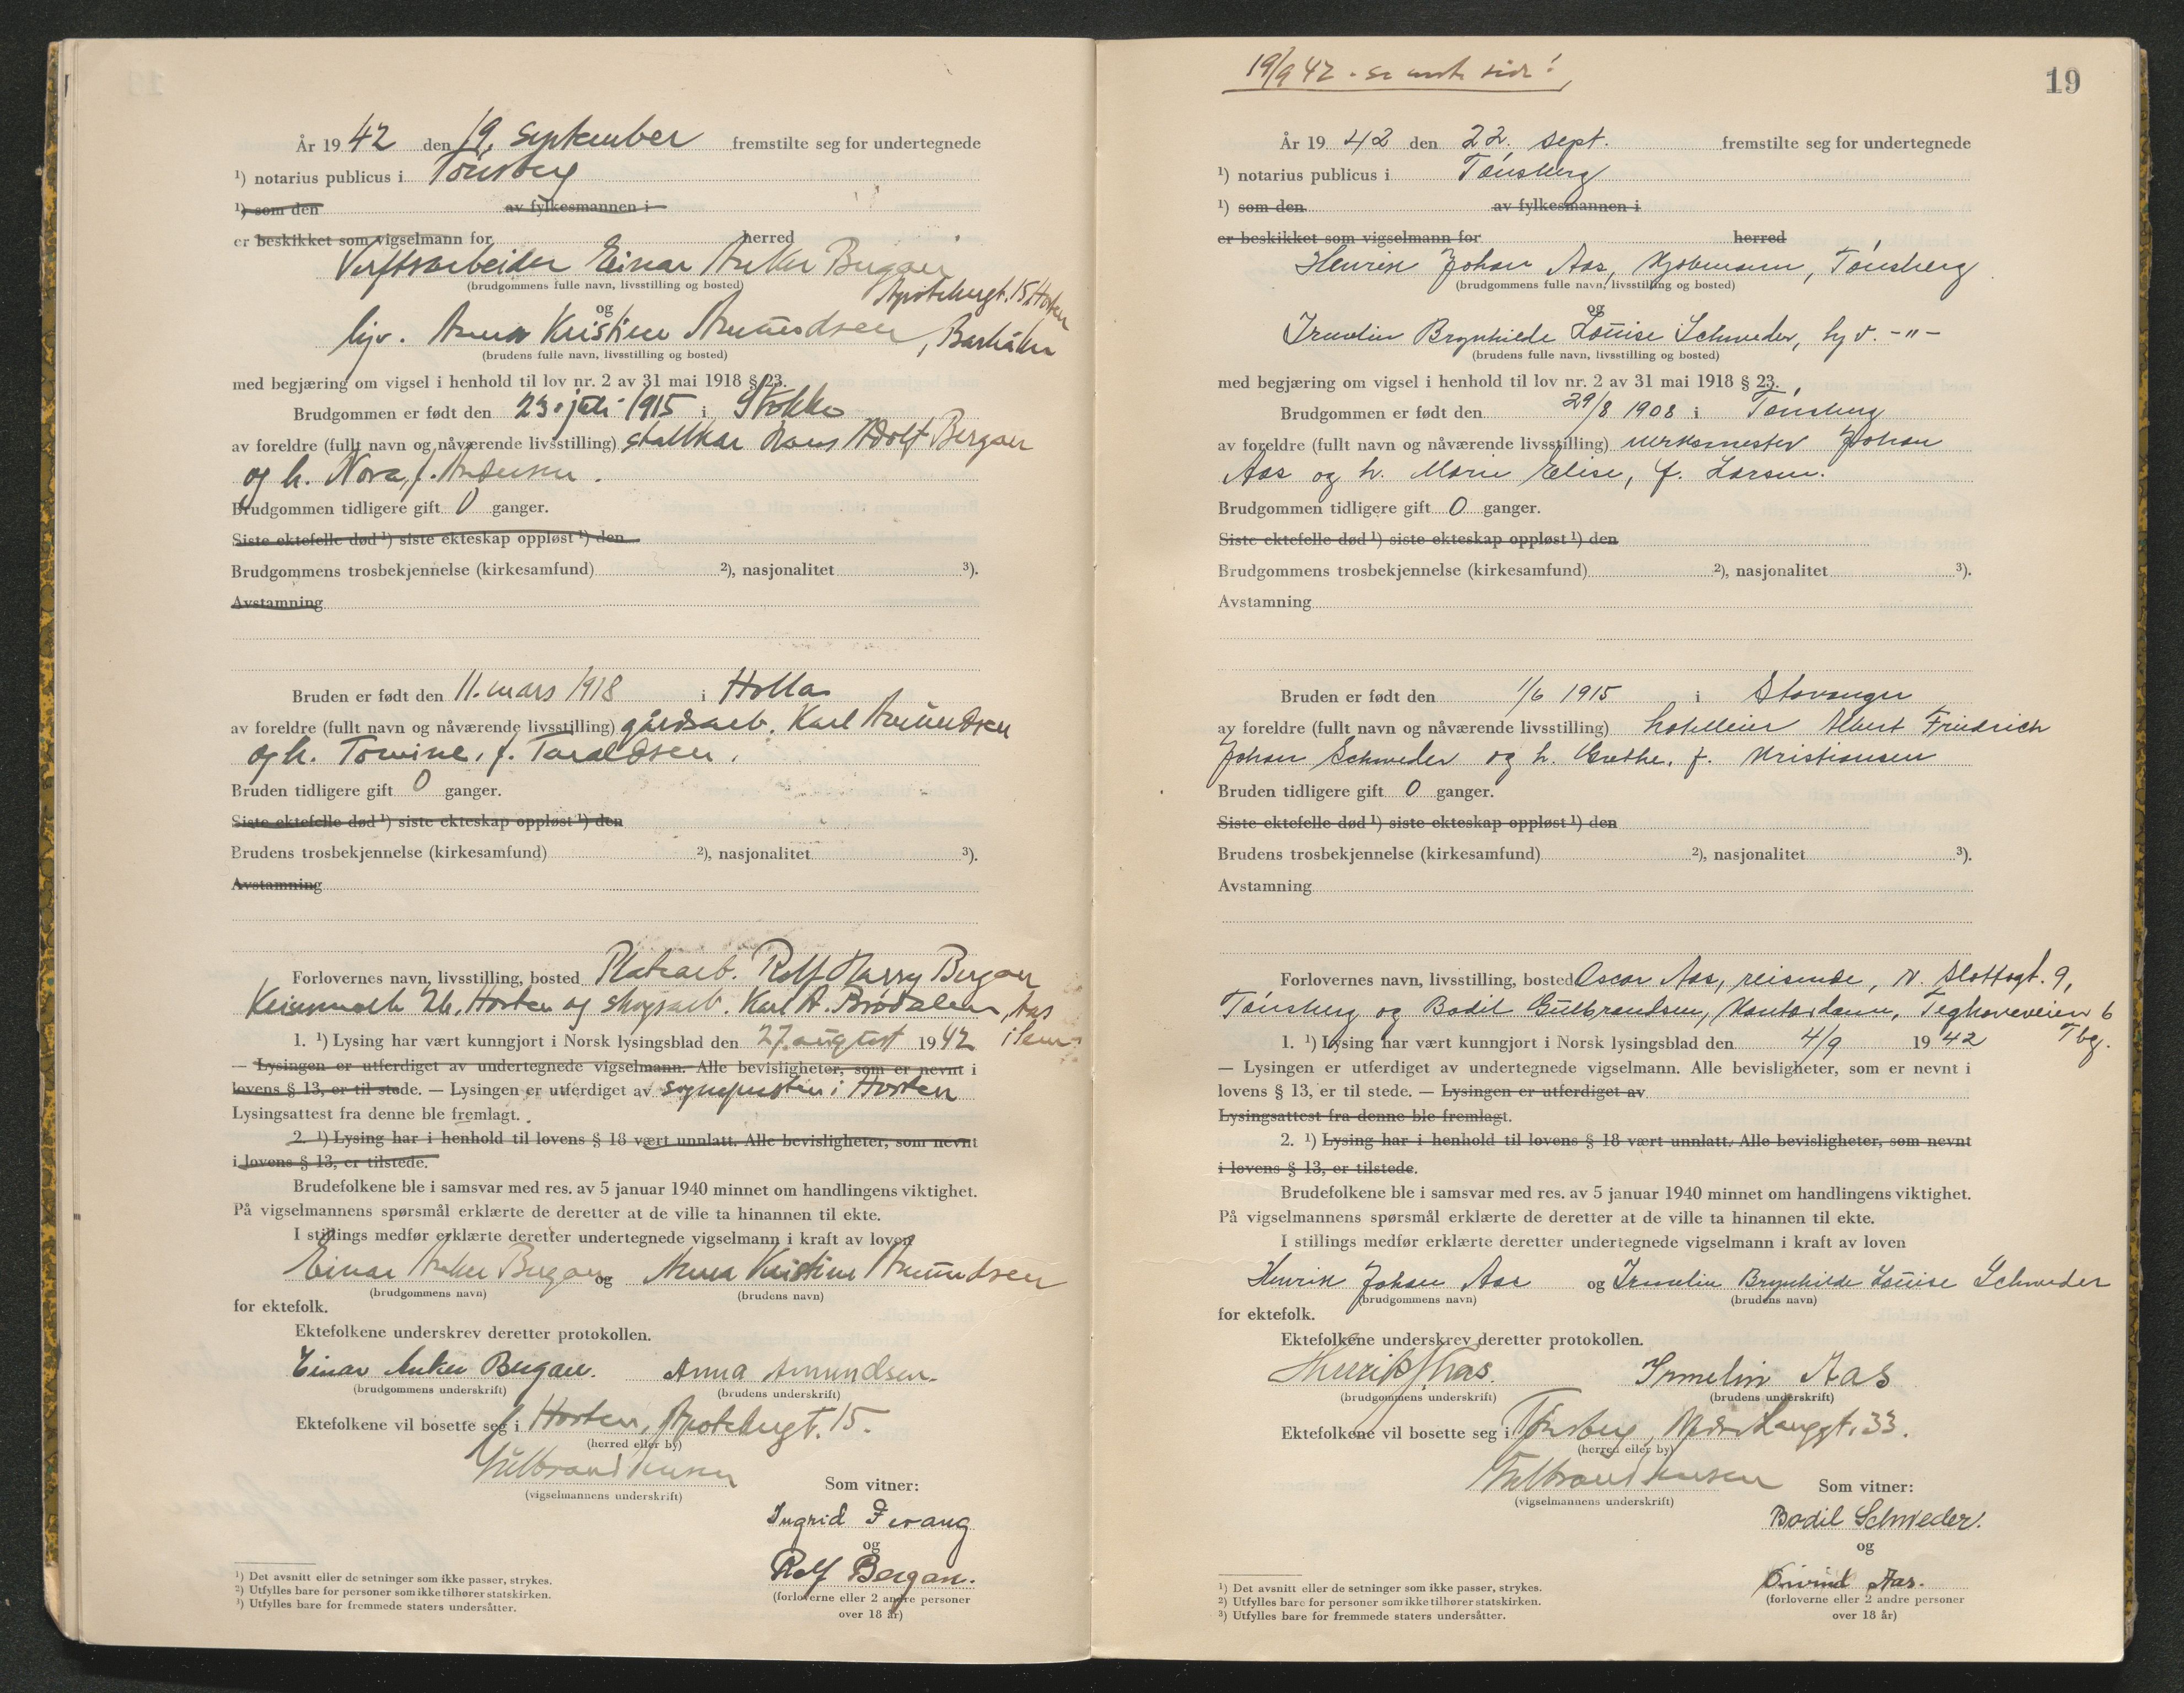 År 1942 den 19. September fremstilte seg for undertegnede
¹) notarius publicus i Tönsberg
¹) som den av fylkesmannen i
er beskikket som vigselmann for herred
Verftsarbeider Einar Anker Bergan
(brudgommens fulle navn, livsstilling og bosted)
Apotekergt. 15, Horten
og
hjv. Anna Kristine Amundsen, Barkåker
(brudens fulle navn, livsstilling og bosted)
med begjæring om vigsel i henhold til lov nr. 2 av 31 mai 1918 § 23.
Brudgommen er født den 23. juli 1915 i Stokke
av foreldre (fullt navn og nåværende livsstilling) stallkar Hans Adolf Bergan
og h. Nora, f. Andersen.
Brudgommen tidligere gift 0 ganger.
Siste ektefelle død ¹) siste ekteskap oppløst ¹) den
Brudgommens trosbekjennelse (kirkesamfund) ²), nasjonalitet ³).
Avstamning
Bruden er født den 11. mars 1918 i Holla
av foreldre (fullt navn og nåværende livsstilling) gårdsarb. Karl Amundsen
og h. Tomine, f. Taraldsen.
Bruden tidligere gift 0 ganger.
Siste ektefelle død ¹) siste ekteskap oppløst ¹) den
Brudens trosbekjennelse (kirkesamfund) ²), nasjonalitet ³).
Avstamning
Forlovernes navn, livsstilling, bosted Platearb. Rolf Harry Bergan
Horten og skogsarb. Karl A. Brødalen, Aas
i Sem
1. ¹) Lysing har vært kunngjort i Norsk lysingsblad den 27. august 1942
— Lysingen er utferdiget av undertegnede vigselmann. Alle bevisligheter, som er nevnt i
lovens § 13, er til stede. — Lysingen er utferdiget av sogneprsten i Horten
Lysingsattest fra denne ble fremlagt.
2. ¹) Lysing har i henhold til lovens § 18 vært unnlatt. Alle bevisligheter, som nevnt
i lovens § 13, er tilstede.
Brudefolkene ble i samsvar med res. av 5 januar 1940 minnet om handlingens viktighet.
På vigselmannens spørsmål erklærte de deretter at de ville ta hinannen til ekte.
I stillings medfør erklærte deretter undertegnede vigselmann i kraft av loven
Einar Anker Bergan og Anna Kristine Amundsen
(brudgommens navn) (brudens navn)
for ektefolk.
Ektefolkene underskrev deretter protokollen.
Einar Anker Bergan. Anna Amundsen.
(brudgommens underskrift) (brudens underskrift)
Ektefolkene vil bosette seg i Horten, Apotekergt. 15.
(herred eller by)
(vigselmannens underskrift)
Som vitner:
Ingrid Fevang
og
Rolf Bergan.
(forloverne eller 2 andre personer
over 18 år)
¹) Det avsnitt eller de setninger som ikke passer, strykes.
²) Utfylles bare for personer som ikke tilhører statskirken.
³) Utfylles bare for fremmede staters undersåtter.
19/9 42 - se side!
19
År 1942 den 22. sept. fremstilte seg for undertegnede
¹) notarius publicus i Tönsberg
¹) som den av fylkesmannen i
er beskikket som vigselmann for herred
Henrik Johan Aas, kjøbmann, Tönsberg
(brudgommens fulle navn, livsstilling og bosted)
og
Irmelin Brynhilde Louise Schweder, hjv. -"-
(brudens fulle navn, livsstilling og bosted)
med begjæring om vigsel i henhold til lov nr. 2 av 31 mai 1918 § 23.
Brudgommen er født den 29/8 1908 i Tönsberg
av foreldre (fullt navn og nåværende livsstilling) verksmester Johan
Aas og h. Marie Elise, f. Larsen.
Brudgommen tidligere gift 0 ganger.
Siste ektefelle død ¹) siste ekteskap oppløst ¹) den
Brudgommens trosbekjennelse (kirkesamfund) ²), nasjonalitet ³).
Avstamning
Bruden er født den 1/6 1915 i Stavanger
av foreldre (fullt navn og nåværende livsstilling) hotelleier Albert Friedrich
Johan Schweder og h. Grethe, f. Kristiansen
Bruden tidligere gift 0 ganger.
Siste ektefelle død ¹) siste ekteskap oppløst ¹) den
Brudens trosbekjennelse (kirkesamfund) ²), nasjonalitet ³).
Avstamning
Forlovernes navn, livsstilling, bosted Oscar Aas, reisende, N. Slottsgt. 9,
Tönsberg og Bodil Gulbrandsen, kontordame, Teghoveveien 6
Tbg.
1. ¹) Lysing har vært kunngjort i Norsk lysingsblad den 4/9 1942
— Lysingen er utferdiget av undertegnede vigselmann. Alle bevisligheter, som er nevnt i
lovens § 13, er til stede. — Lysingen er utferdiget av
Lysingsattest fra denne ble fremlagt.
2. ¹) Lysing har i henhold til lovens § 18 vært unnlatt. Alle bevisligheter, som nevnt
i lovens § 13, er tilstede.
Brudefolkene ble i samsvar med res. av 5 januar 1940 minnet om handlingens viktighet.
På vigselmannens spørsmål erklærte de deretter at de ville ta hinannen til ekte.
I stillings medfør erklærte deretter undertegnede vigselmann i kraft av loven
Henrik Johan Aas og Irmelin Brynhilde Louise Schweder
(brudgommens navn) (brudens navn)
for ektefolk.
Ektefolkene underskrev deretter protokollen.
Henrik J Aas. Irmelin Aas
(brudgommens underskrift) (brudens underskrift)
Ektefolkene vil bosette seg i Tönsberg, Nedre Langgt. 33.
(herred eller by)
(vigselmannens underskrift)
Som vitner:
Bodil Schweder.
og
Öivind Aas.
(forloverne eller 2 andre personer
over 18 år)
¹) Det avsnitt eller de setninger som ikke passer, strykes.
²) Utfylles bare for personer som ikke tilhører statskirken.
³) Utfylles bare for fremmede staters undersåtter.